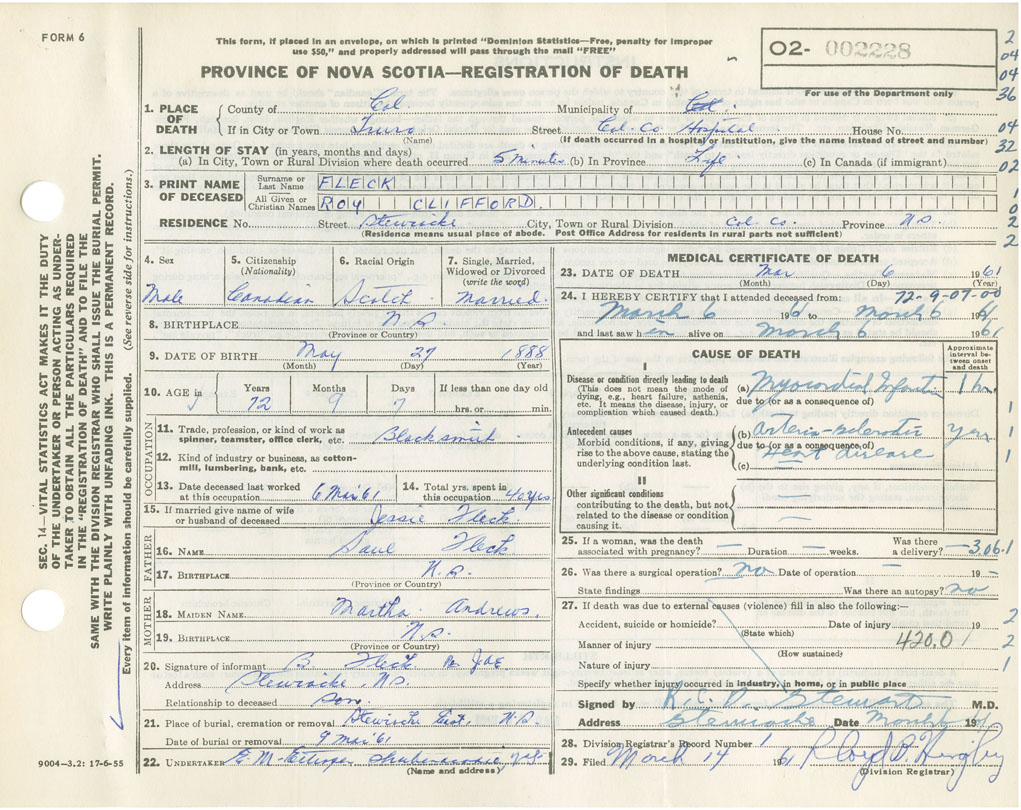 FORM 6
This form, if placed in an envelope, on which is printed "Dominion Statistics—Free, penalty for improper
use $50," and properly addressed will pass through the mail "FREE"
PROVINCE OF NOVA SCOTIA—REGISTRATION OF DEATH
O2- 002228
For use of the Department only
2
04
04
36
04
32
02
1
0
2
2
SEC. 14—VITAL STATISTICS ACT MAKES IT THE DUTY
OF THE UNDERTAKER OR PERSON ACTING AS UNDER-
TAKER TO OBTAIN ALL THE PARTICULARS REQUIRED
IN THE "REGISTRATION OF DEATH" AND TO FILE THE
SAME WITH THE DIVISION REGISTRAR WHO SHALL ISSUE THE BURIAL PERMIT.
WRITE PLAINLY WITH UNFADING INK. THIS IS A PERMANENT RECORD.
Every item of information should be carefully supplied. (See reverse side for instructions.)
1. PLACE OF DEATH
County of Col. Municipality of Col.
If in City or Town Truro Street Col. Co. Hospital House No.
(Name) (If death occurred in a hospital or institution, give the name instead of street and number)
2. LENGTH OF STAY (in years, months and days)
(a) In City, Town or Rural Division where death occurred 5 minutes (b) In Province Life (c) In Canada (if immigrant)
3. PRINT NAME OF DECEASED
Surname or Last Name FLECK
All Given or Christian Names ROY CLIFFORD.
RESIDENCE No. Street Stewiacke City, Town or Rural Division Col. Co. Province N.S.
(Residence means usual place of abode. Post Office Address for residents in rural parts not sufficient)
4. Sex Male
5. Citizenship (Nationality) Canadian
6. Racial Origin Scotch
7. Single, Married, Widowed or Divorced (write the word) Married.
8. BIRTHPLACE N.S.
(Province or Country)
9. DATE OF BIRTH May 27 1888
(Month) (Day) (Year)
10. AGE in Years 72 Months 9 Days 7 If less than one day old hrs. or min.
OCCUPATION
11. Trade, profession, or kind of work as
spinner, teamster, office clerk, etc. Blacksmith
12. Kind of industry or business, as cotton-
mill, lumbering, bank, etc.
13. Date deceased last worked
at this occupation 6 Mar '61
14. Total yrs. spent in
this occupation 40 yrs
15. If married give name of wife
or husband of deceased Jessie Fleck.
FATHER
16. NAME Fleck
17. BIRTHPLACE N.S.
(Province or Country)
MOTHER
18. MAIDEN NAME Martha Andrews.
19. BIRTHPLACE N.S.
(Province or Country)
20. Signature of informant B. Fleck
Address Stewiacke, N.S.
Relationship to deceased son.
21. Place of burial, cremation or removal Stewiacke East N.S.
Date of burial or removal 9 Mar '61
22. UNDERTAKER Shubenacadie N.S.
(Name and address)
9004-3.2: 17-6-55
MEDICAL CERTIFICATE OF DEATH
23. DATE OF DEATH Mar 6 1961
(Month) (Day) (Year)
24. I HEREBY CERTIFY that I attended deceased from: 72-9-07-00
March 6 1961 to March 6 1961
and last saw him alive on March 6 1961
CAUSE OF DEATH
Approximate interval between onset and death
I
Disease or condition directly leading to death
(This does not mean the mode of
dying, e.g., heart failure, asthenia,
etc. It means the disease, injury, or
complication which caused death.)
(a) Myocardial Infarct 1 hr.
due to (or as a consequence of)
Antecedent causes
Morbid conditions, if any, giving
rise to the above cause, stating the
underlying condition last.
(b) Arterio-sclerotic yrs
due to (or as a consequence of)
Heart disease
(c)
1
1
1
II
Other significant conditions
contributing to the death, but not
related to the disease or condition
causing it.
25. If a woman, was the death
associated with pregnancy? — Duration — weeks. Was there a delivery? — 3.06.1
26. Was there a surgical operation? no Date of operation — 19 —
State findings Was there an autopsy? no
27. If death was due to external causes (violence) fill in also the following:—
Accident, suicide or homicide? Date of injury 19 2
(State which)
Manner of injury 420.0 1 2
(How sustained)
Nature of injury 1
Specify whether injury occurred in industry, in home, or in public place
Signed by R. C. D. Stewart M.D.
Address Stewiacke Date March 1961
28. Division Registrar's Record Number 1
29. Filed March 14 1961
(Division Registrar)